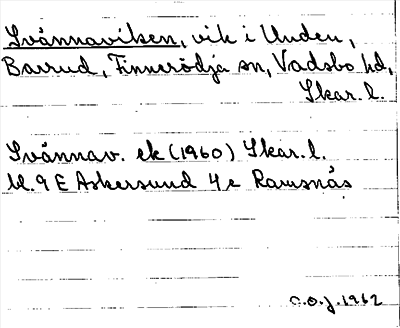 Svånnaviken, vik i Unden,
Barrud, Finnerödja sn, Vadsbo hd,
Skar. l.
Svånnav. ek (1960) Skar. l.
bl. 9 E Askersund 4 c Ramsnäs
C.O.J. 1962